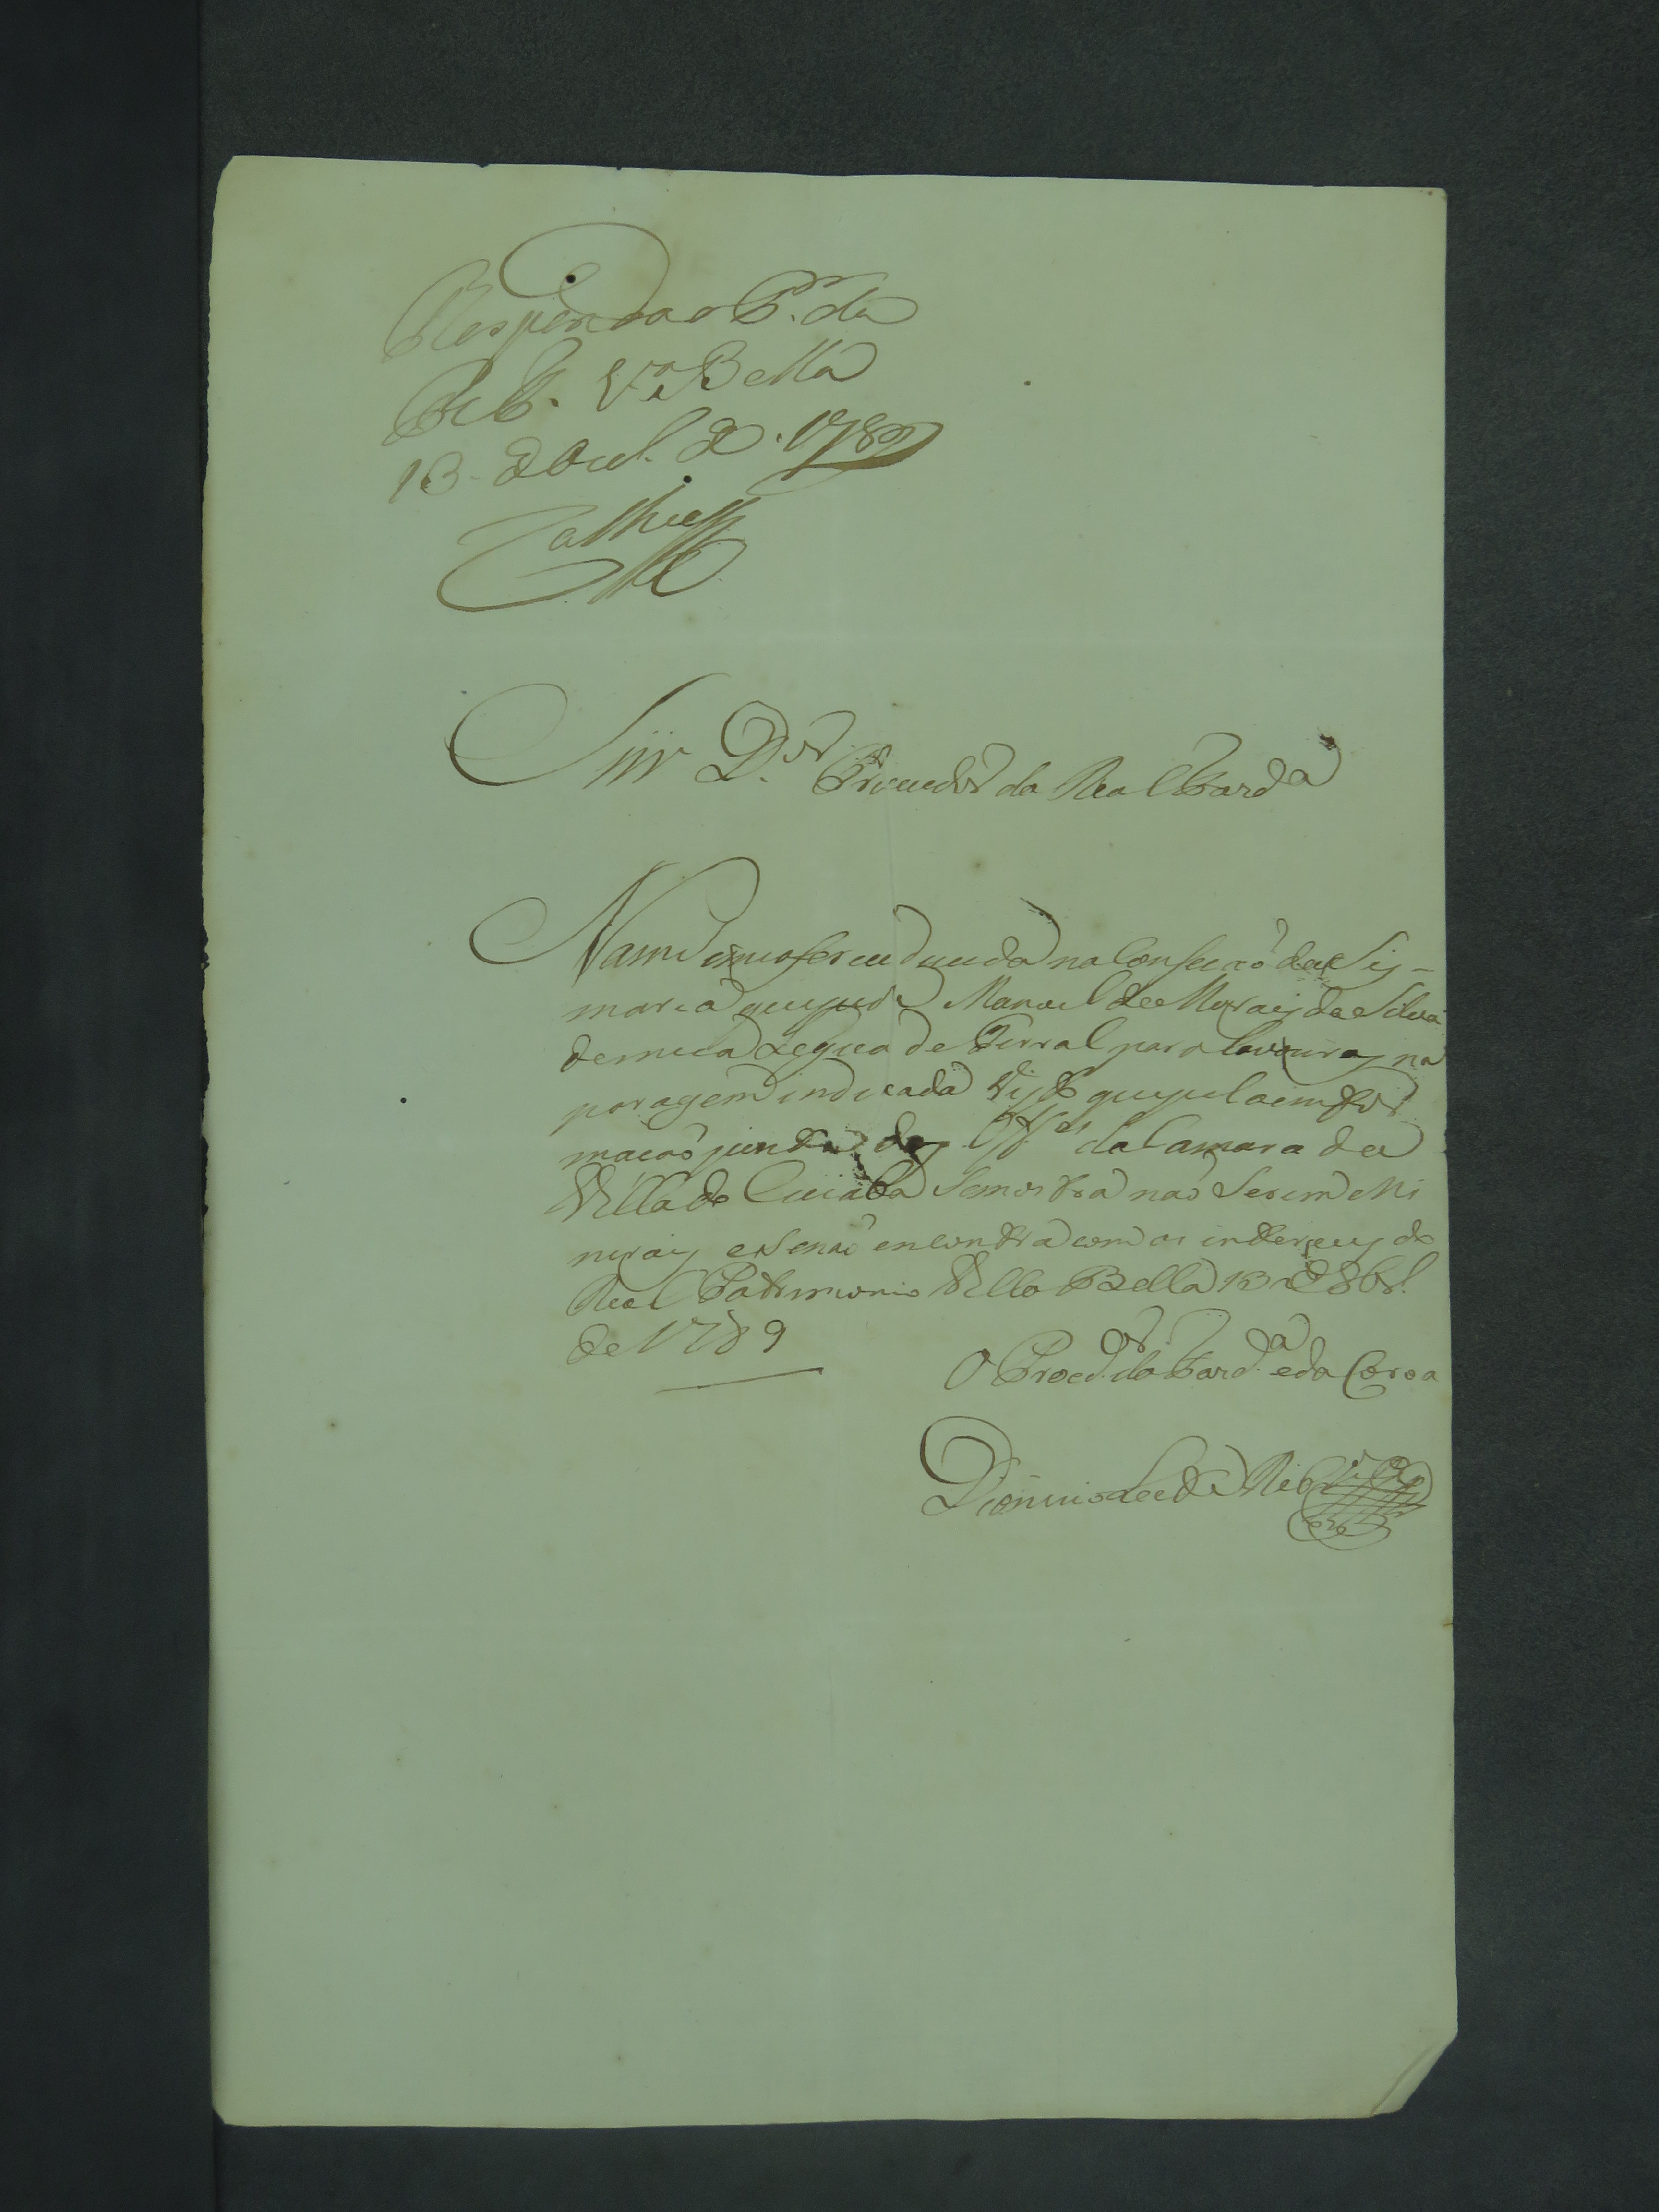 Responda o P.or da
V.a Bella
13 de Out. de 1789
Snr D.or Provedor da Real Fazd.a
Nam se me oferece duvida na Conseçaõ da Sis-
maria que pede Manoel de Moraes da Silva
de meia Legua de terra para lavouras na
paragem indicada visto que pela infor
maçaõ junta dos Off.es da Camara da
Villa do Cuiaba se mostra naõ serem Mi
neraes e se naõ encontra com os interesses do
Real Patrimonio Villa Bella 13 de
de 1789
O Procd.or da Fazd.a e da Coroa
Dionizio